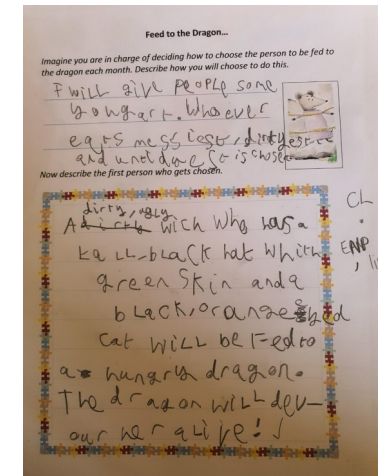 Feed to the Dragon...
Imagine you are in charge of deciding how to choose the person to be fed to
the dragon each month. Describe how you will choose to do this.
I will give people some
yongart. Whoever
eats messiest, dirtyest
and is chosen
Now describe the first person who gets chosen.
dirty, ugly
A wich who has a
tall-black hat whith
green skin and a
black, orange
cat will be fed to
a hungry dragon.
The dragon will dev-
our her alive!
CL
.
ENP
,